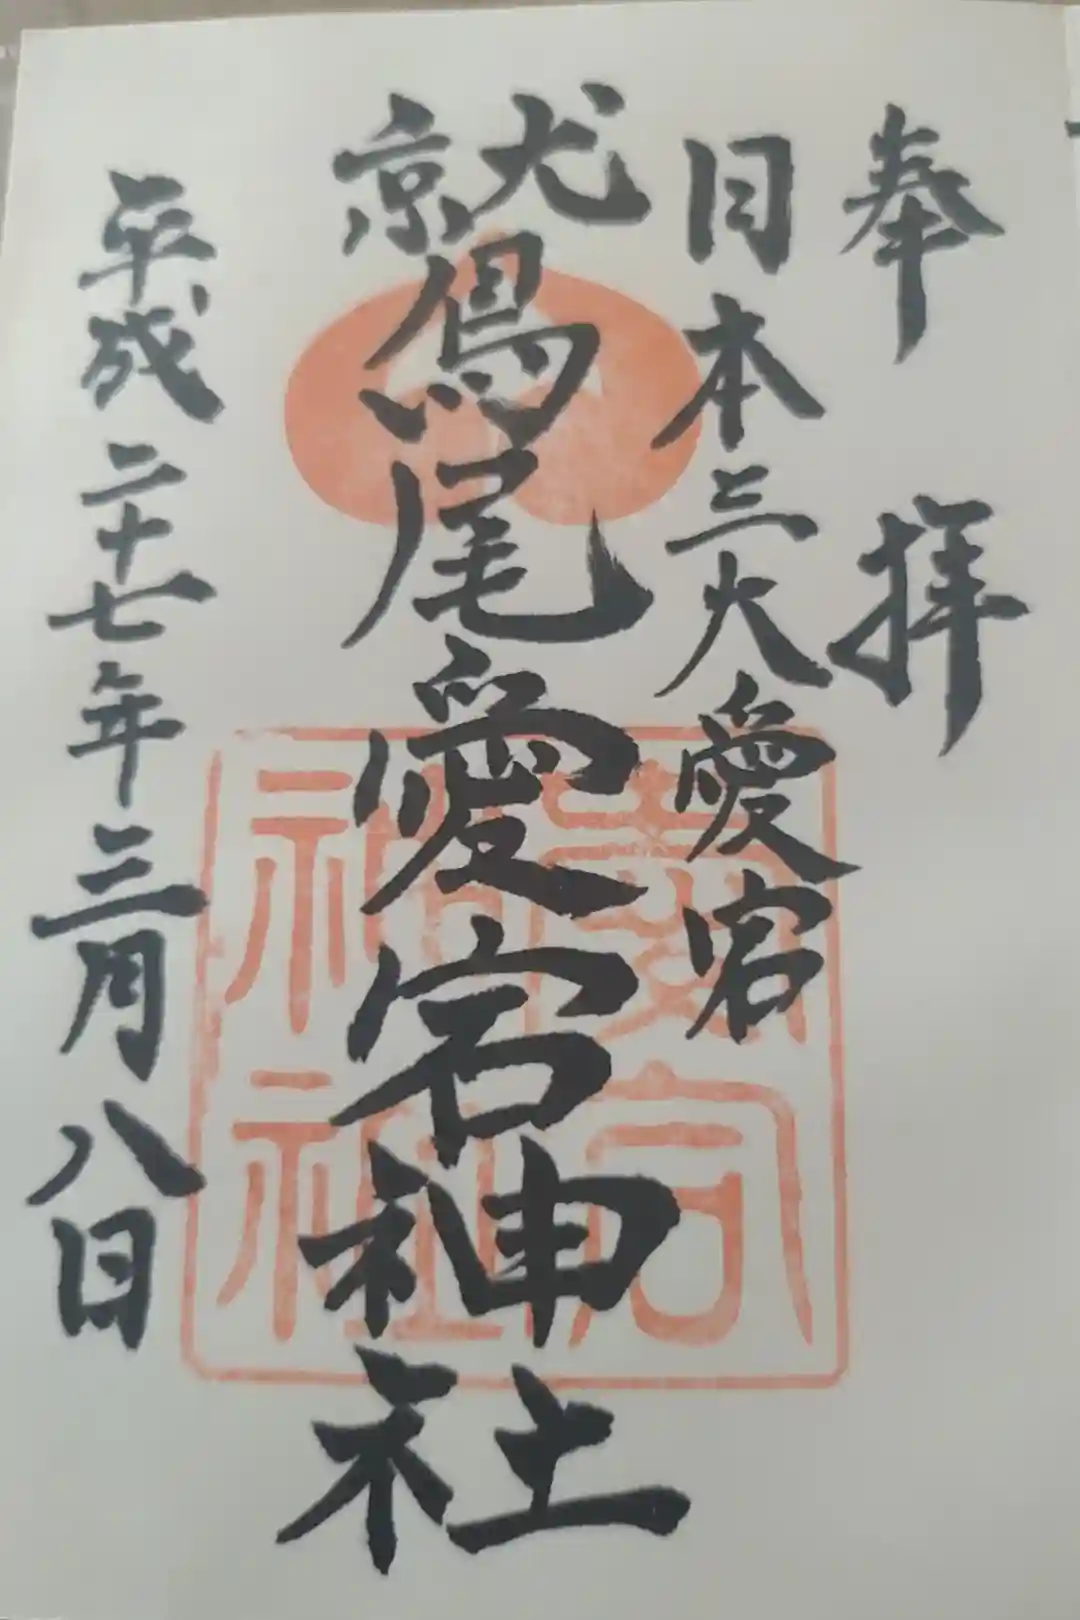 奉拝
日本三大愛宕
鷲尾愛宕神社
平成二十七年三月八日
愛宕神社